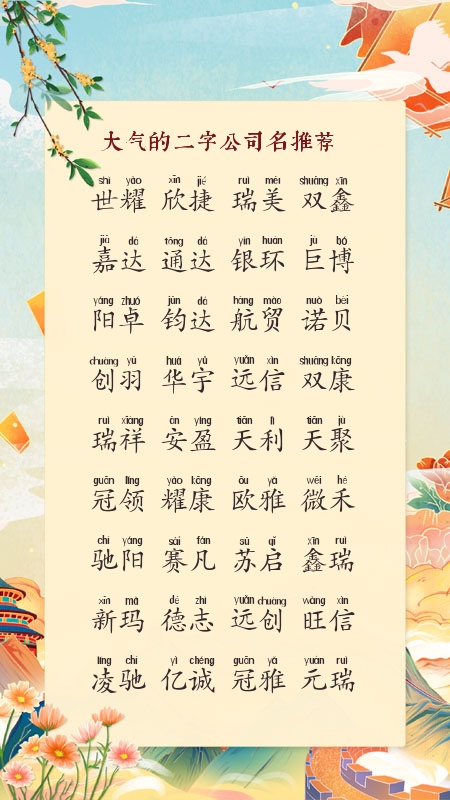 大气的二字公司名推荐
shì yào xīn jié ruì měi shuāng xīn
世耀 欣捷 瑞美 双鑫
jiā dá tōng dá yín huán jù bó
嘉达 通达 银环 巨博
yáng zhuó jūn dá háng mào nuò bèi
阳卓 钧达 航贸 诺贝
chuàng yǔ huá yǔ yuǎn xìn shuāng kāng
创羽 华宇 远信 双康
ruì xiáng ān yíng tiān lì tiān jù
瑞祥 安盈 天利 天聚
guān lǐng yào kāng ōu yǎ wēi hé
冠领 耀康 欧雅 微禾
chí yáng sài fán sū qǐ xīn ruì
驰阳 赛凡 苏启 鑫瑞
xīn mǎ dé zhì yuǎn chuàng wàng xìn
新玛 德志 远创 旺信
líng chí yì chéng guān yǎ yuán ruì
凌驰 亿诚 冠雅 元瑞